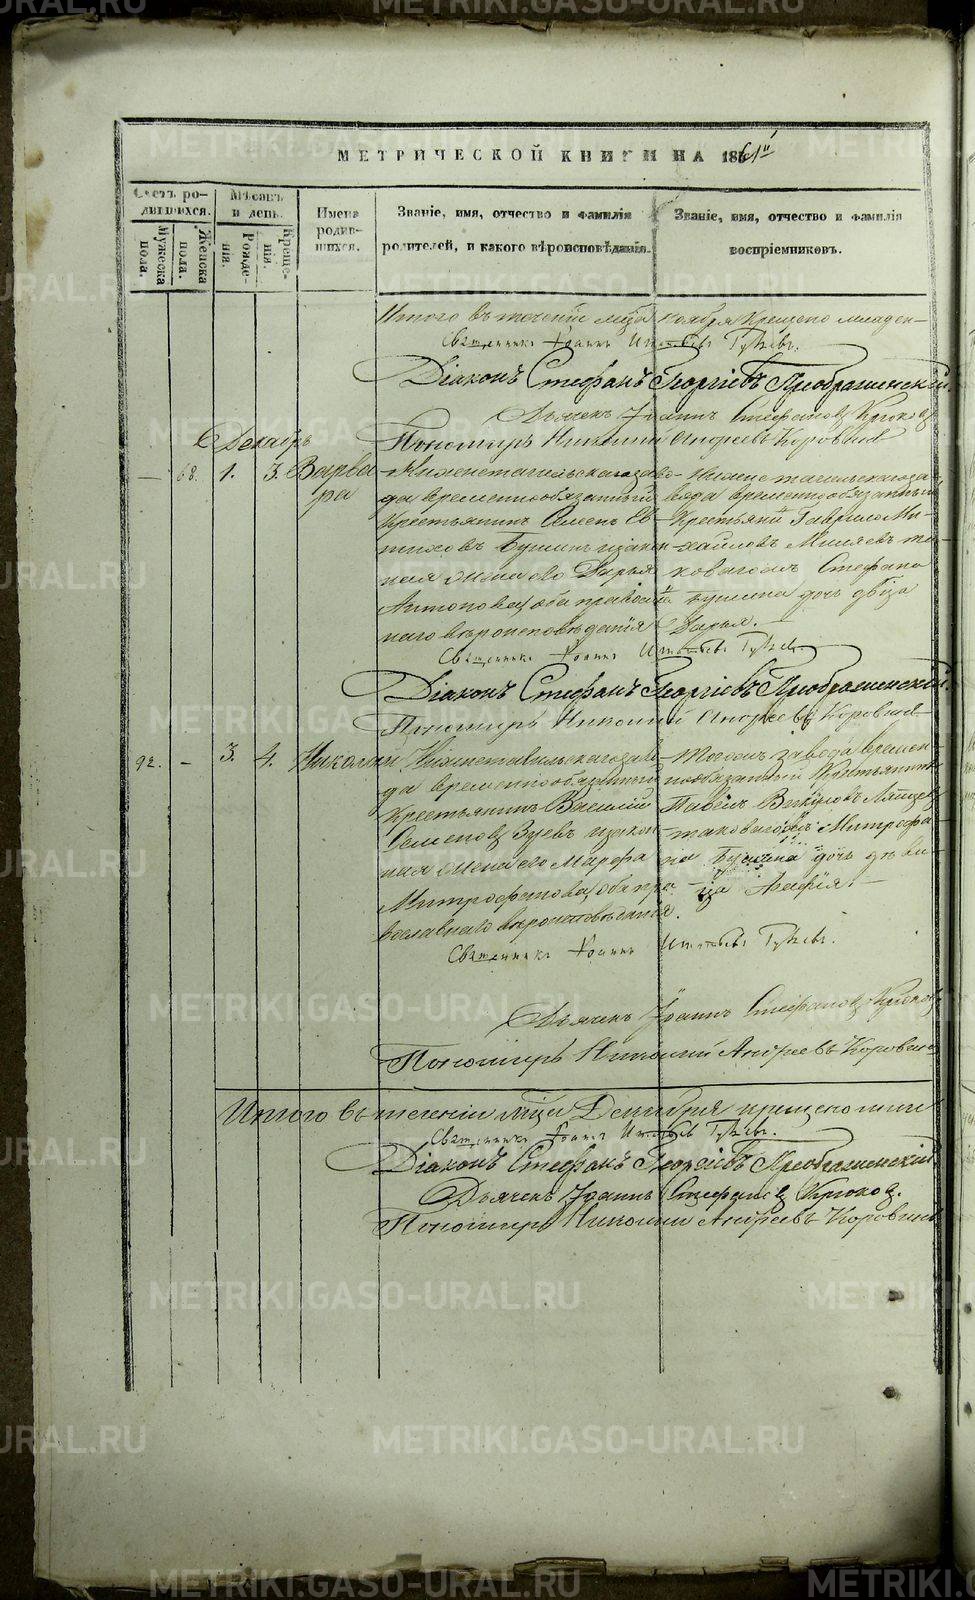 МЕТРИЧЕСКОЙ КНИГИ НА 1861й
Счетъ родившихся.
Мужеска пола.
Женска пола.
Мѣсяцъ и день.
Рождения.
Крещения.
Имена родившихся.
Званіе, имя, отчество и фамилія родителей, и какого вѣроисповѣданія.
Званіе, имя, отчество и фамилія воспріемниковъ.
Итого въ теченіи мѣсца ноября крещено младен-
Священникъ Іоаннъ
Діаконъ Стефанъ Георгіевъ Преображенскій.
Дьячекъ Іоаннъ Стефановъ Крюковъ
Пономарь Николай Андреевъ Коровинъ
Декабрь
— 68. 1. 3. Варвара
Нижнетагильскаго завода временнообязанный
Крестьянинъ Семенъ Ев-
тиховъ Бушинъ и закон-
ная жена его Дарья
Антонова, оба православ-
наго вѣроисповѣданія
Нижнетагильскаго за-
вода временнообязанный
Крестьянинъ Гаврило Ми-
хайловъ
Стефана
Бушина дочь дѣвица
Дарья.
Священникъ Іоаннъ
Діаконъ Стефанъ Георгіевъ Преображенскій.
Пономарь Николай Андреевъ Коровинъ
92. — 3. 4. Николай
Нижнетагильскаго заво-
да временнообязанный
Крестьянинъ Василий
Семеновъ Зуевъ и закон-
ная жена его Марфа
Митрофанова, оба пра-
вославнаго вѣроисповѣданія.
Тогожъ завода времен-
нообязанный Крестьянинъ
Павелъ
таковагожъ Митрофа-
Бушина дочь дѣви-
ца
Священникъ Іоаннъ
Дьячекъ Іоаннъ Стефановъ Крюковъ
Пономарь Николай Андреевъ Коровинъ
Итого въ теченіи мѣсца Декабря крещено
Священникъ Іоаннъ
Діаконъ Стефанъ Георгіевъ Преображенскій
Дьячекъ Іоаннъ Стефановъ Крюковъ.
Пономарь Николай Андреевъ Коровинъ
METRIKI.GASO-URAL.RU